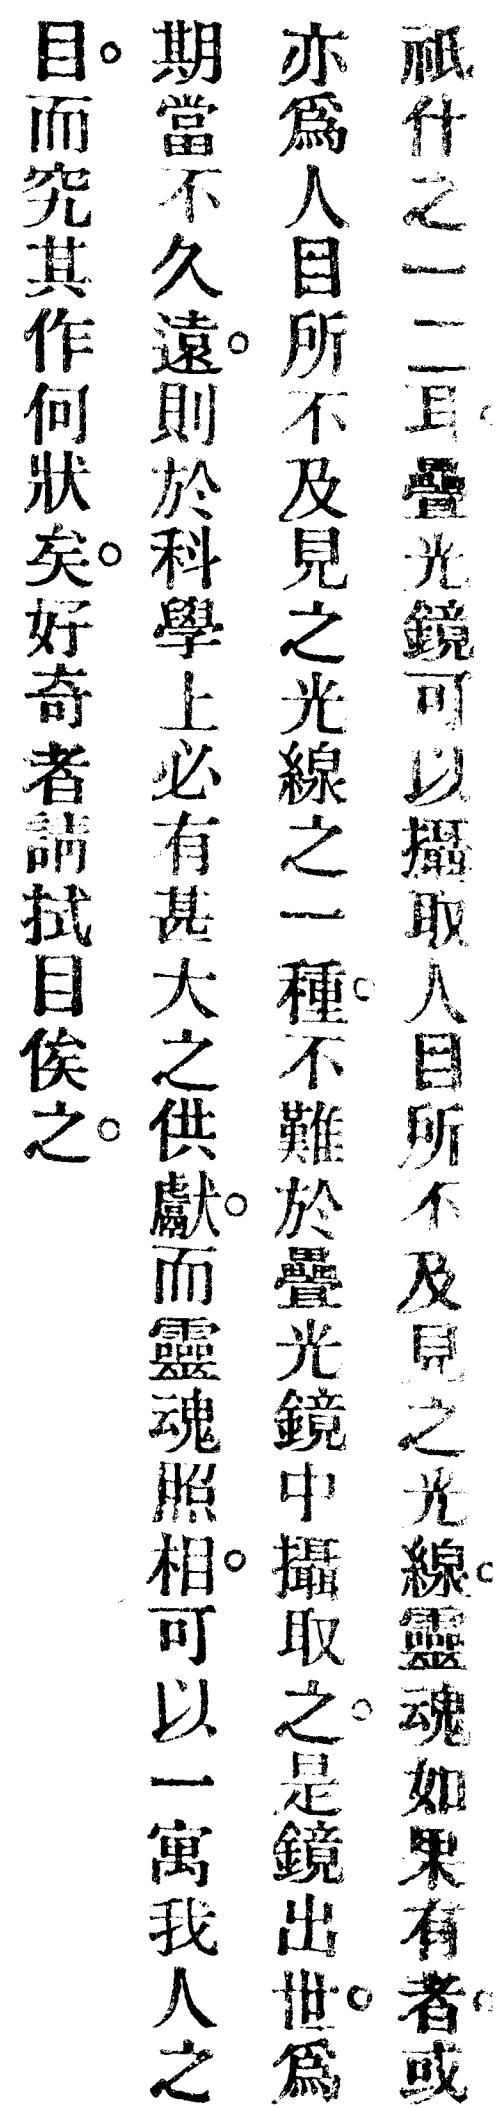 祇什之一二耳。疊光鏡可以攝取人目所不及見之光線。靈魂如果有者。或
亦爲人目所不及見之光線之一種。不難於疊光鏡中攝取之。是鏡出世。爲
期當不久遠。則於科學上必有甚大之供獻。而靈魂照相。可以一寓我人之
目。而究其作何狀矣。好奇者請拭目俟之。